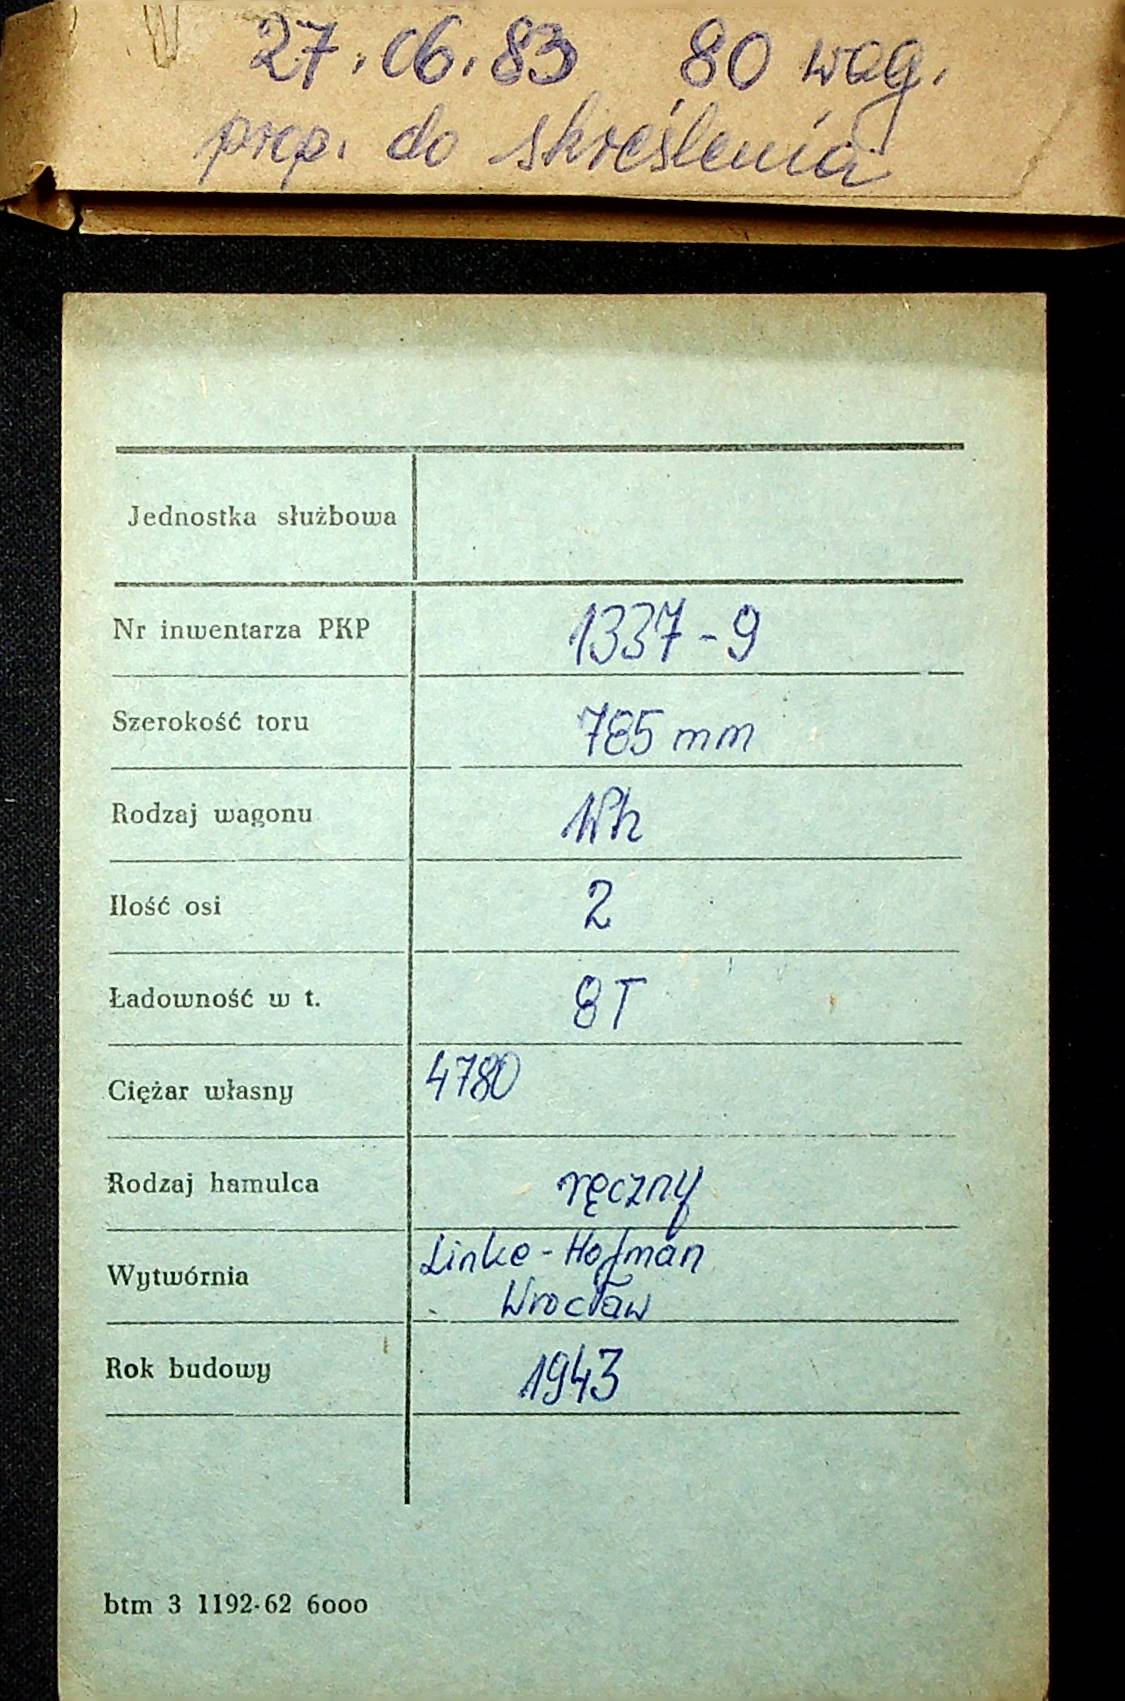 27.06.83 80 wag.
prop. do skreślenia
Jednostka służbowa
Nr inwentarza PKP 1337-9
Szerokość toru 785 mm
Rodzaj wagonu Wh
Ilość osi 2
Ładowność w t. 8T
Ciężar własny 4780
Rodzaj hamulca ręczny
Wytwórnia Linke-Hofman
Wrocław
Rok budowy 1943
btm 3 1192-62 6000